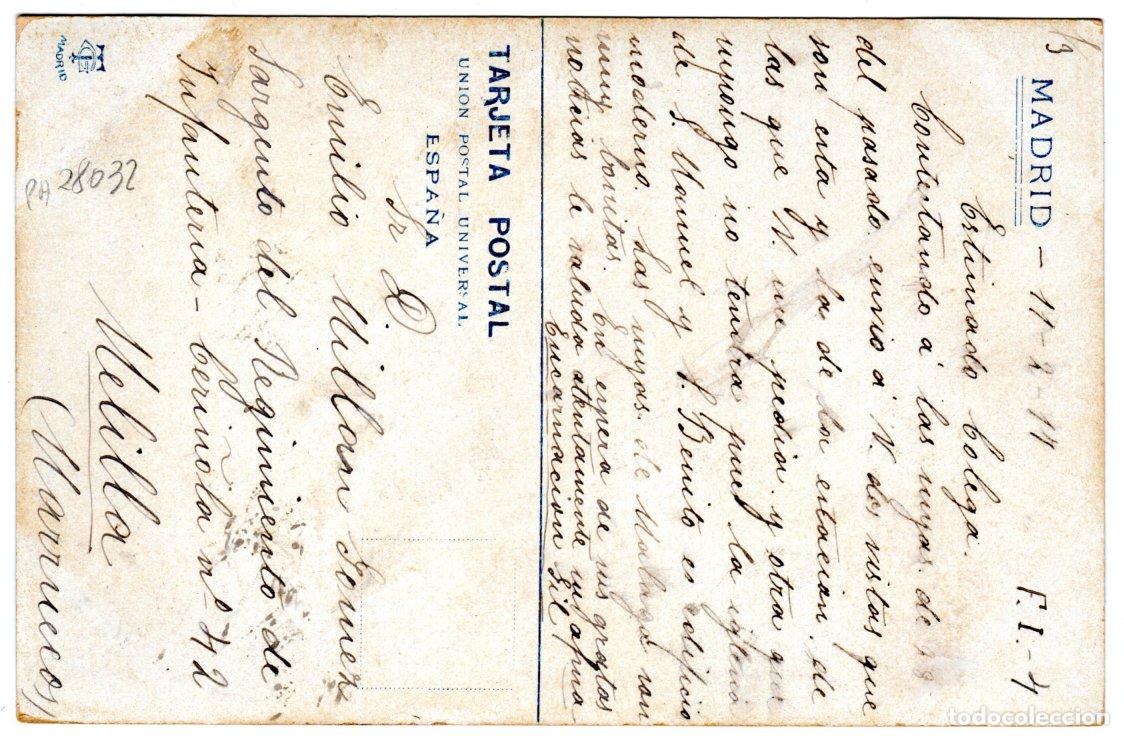 MADRID - 11-2-14
F.I.-4
Estimado Colega.
Contestando á las suyas de
del pasado. envio á V. dos vistas que
son esta y la de la estacion, de
las que V. me pedia. y otra que
supongo no tendra pues la iglesia
de S. Manuel y S. Benito es edificio
moderno. Las suyas de Malaga son
muy bonitas. En espera de sus gratas
noticias le saluda atentamente su afma
Encarnacion Gil
TARJETA POSTAL
UNION POSTAL UNIVERSAL
ESPAÑA
Sr D.
Emilio Millan Gomez
Sargento del Regimiento de
Infanteria - Ceriñola nº 42
Melilla
(Marruecos)
MADRID
PA 28032
todocoleccion